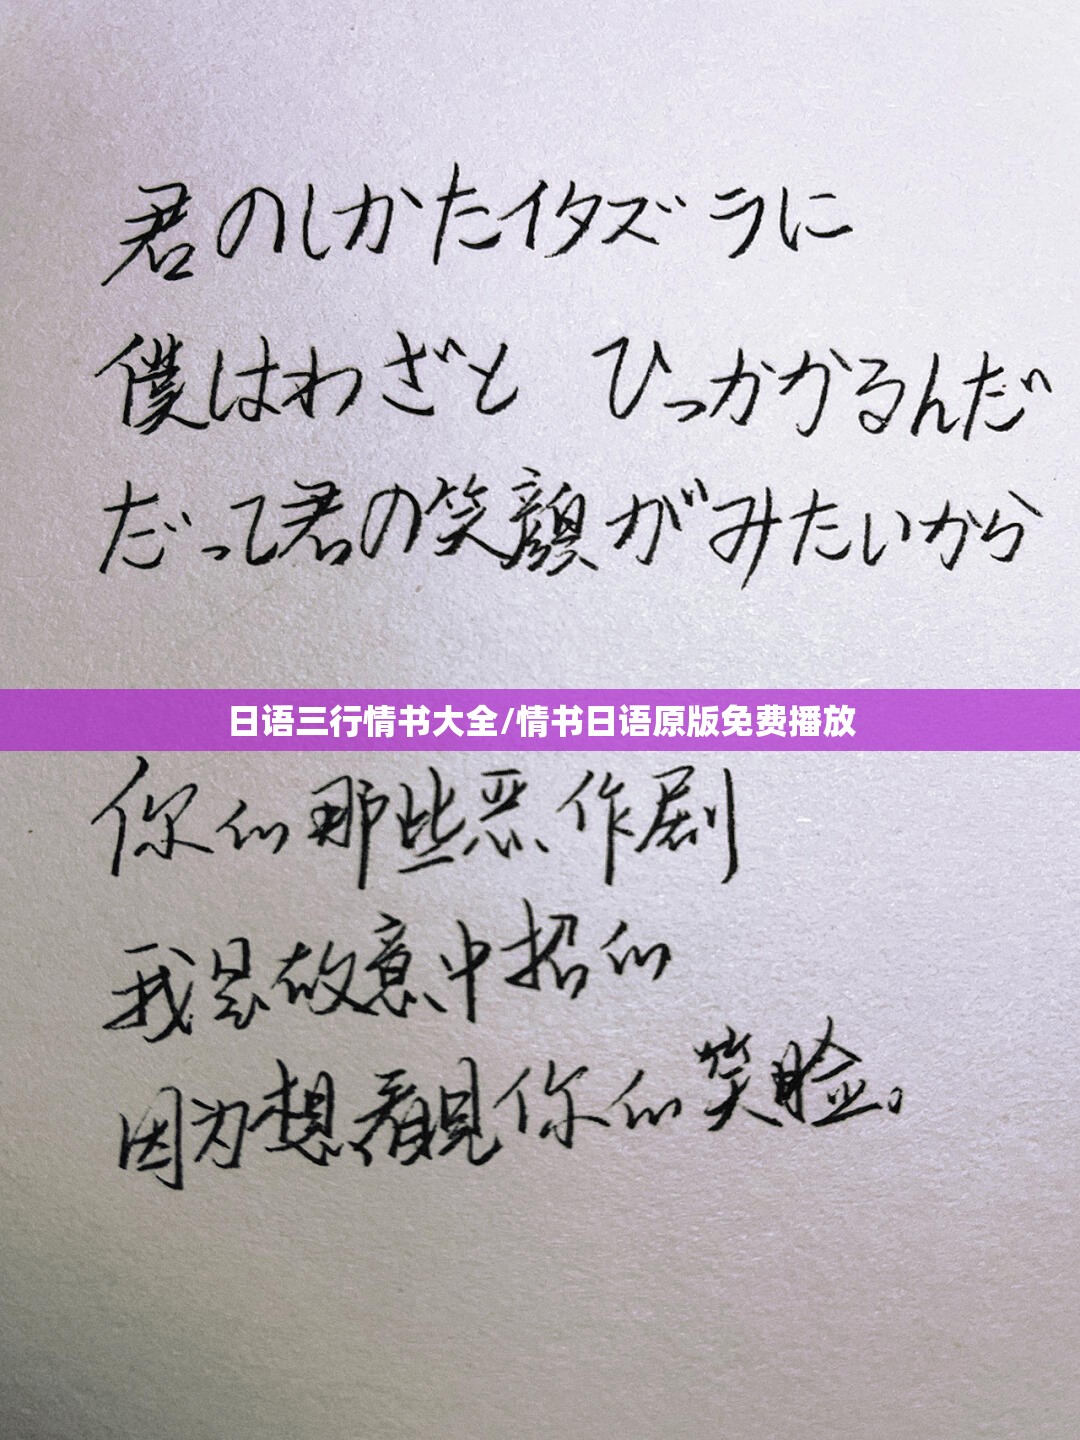 君のしかたイタズラに
僕はわざと ひっかかるんだ
だって君の笑顔がみたいから
日语三行情书大全/情书日语原版免费播放
你的那些恶作剧
我是故意中招的
因为想看見你的笑脸。